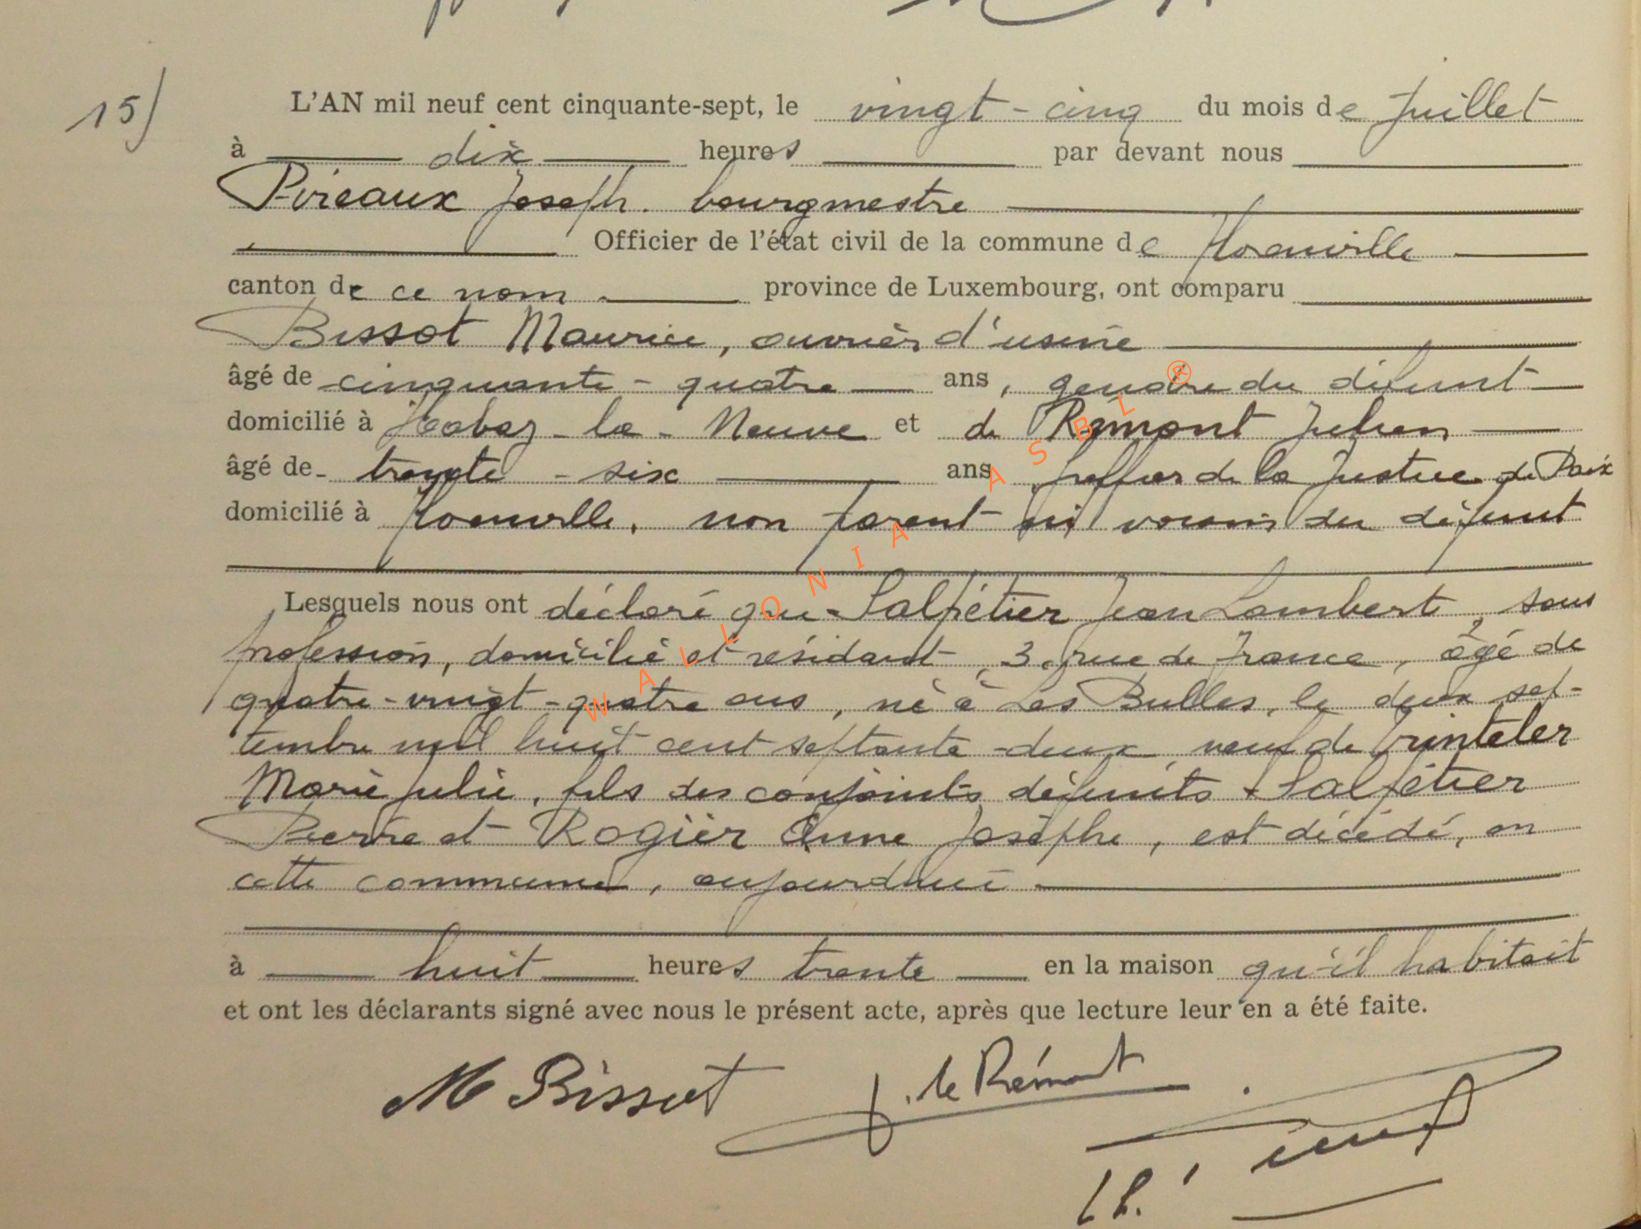 15)
L'AN mil neuf cent cinquante-sept, le vingt-cinq du mois de Juillet
à dix heures par devant nous
Pireaux Joseph. bourgmestre
Officier de l'état civil de la commune de Florenville
canton de ce nom. province de Luxembourg, ont comparu
Bissot Maurice, ouvrier d'usine
âgé de cinquante-quatre ans, gendre du défunt
domicilié à Habay-la-Neuve et de Remont Julien
âgé de trente-six ans, greffier de la Justice de Paix
domicilié à Florenville, non parent ni voisin du défunt
Lesquels nous ont déclaré que Salpétier Jean Lambert, sans
profession, domicilié et résidant, 3, rue de France, âgé de
quatre-vingt-quatre ans, né à Les Bulles, le deux sep-
tembre mil huit cent septante-deux, veuf de Printeler
Marie Julie, fils des conjoints défunts Salpétier
Pierre et Rogier Anne Josèphe, est décédé, en
cette commune, aujourd'hui
à huit heures trente en la maison qu'il habitait
et ont les déclarants signé avec nous le présent acte, après que lecture leur en a été faite.
M Bissot J. le Rémont
WALLONIA ASBL ®